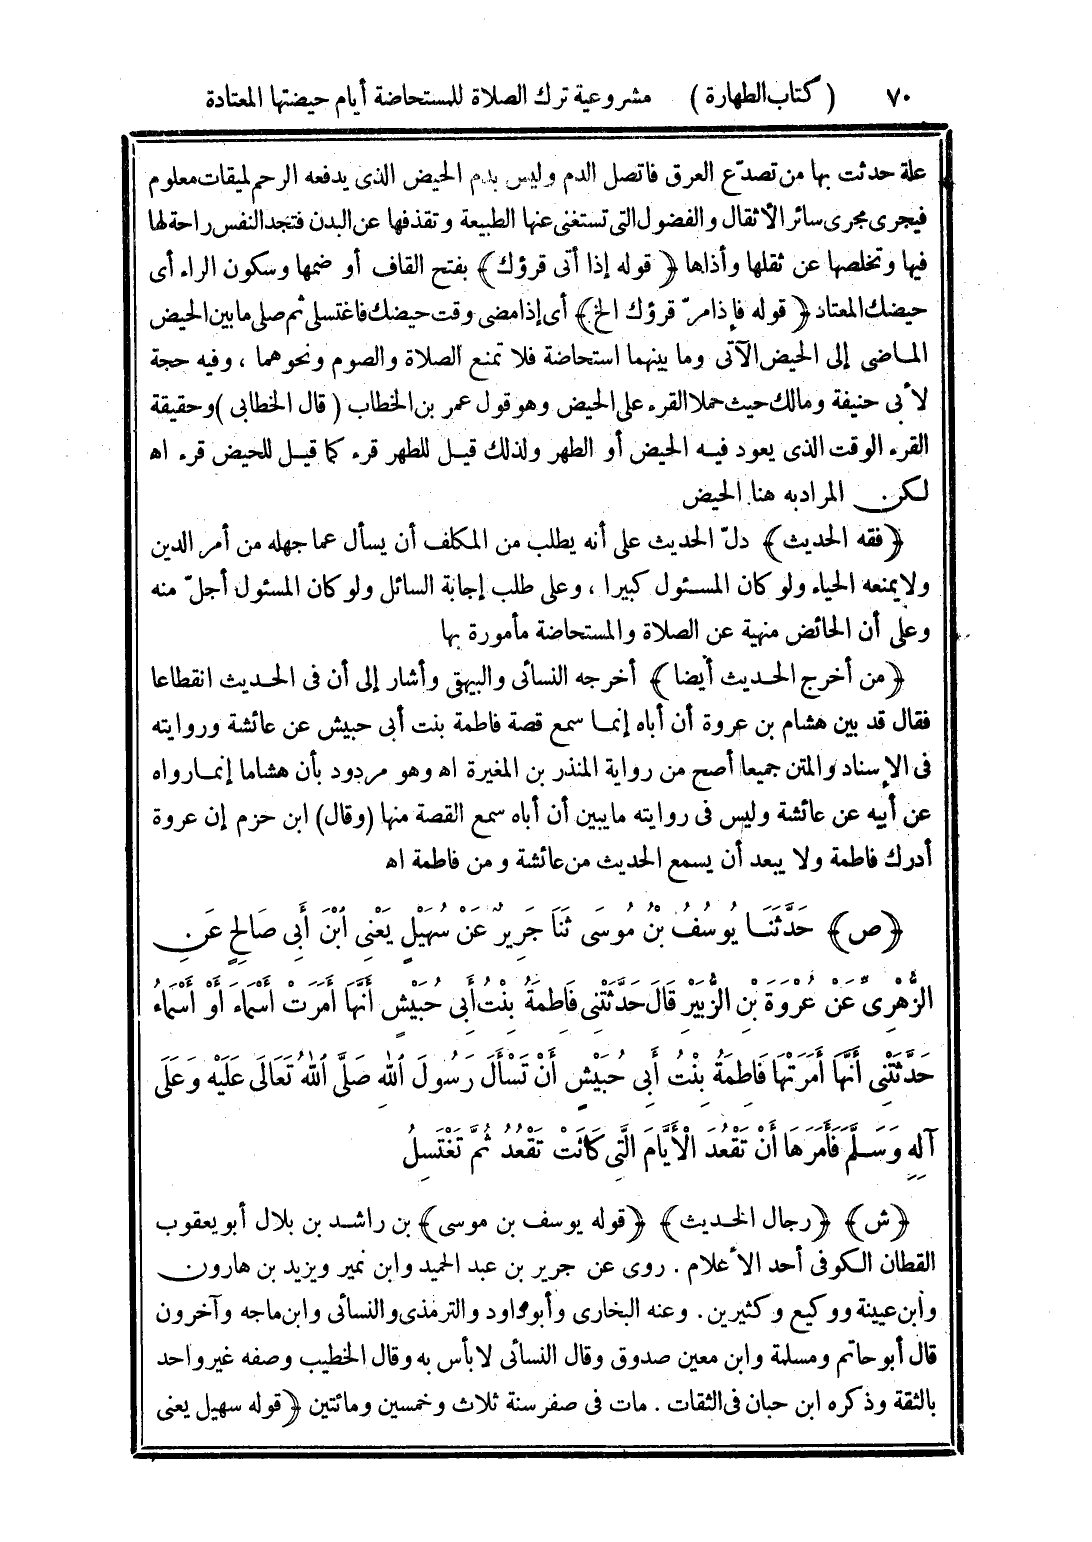 ٧٠ (كتاب الطهارة) مشروعية ترك الصلاة للمستحاضة أيام حيضتها المعتادة
علة حدثت بها من تصدّع العرق فاتصل الدم وليس بدم الحيض الذى يدفعه الرحم لميقات معلوم
فيجرى مجرى سائر الأثقال والفضول التى تستغنى عنها الطبيعة وتقذفها عن البدن فتجد النفس راحة لها
فيها وتخلصها عن ثقلها وأذاها ﴿قوله إذا أتى قرؤك﴾ بفتح القاف أو ضمها وسكون الراء أى
حيضك المعتاد ﴿قوله فإذا مرّ قرؤك الخ﴾ أى إذا مضى وقت حيضك فاغتسلى ثم صلى ما بين الحيض
الماضى إلى الحيض الآتى وما بينهما استحاضة فلا تمنع الصلاة والصوم ونحوهما ، وفيه حجة
لأبى حنيفة ومالك حيث حملا القرء على الحيض وهو قول عمر بن الخطاب (قال الخطابى) وحقيقة
القرء الوقت الذى يعود فيه الحيض أو الطهر ولذلك قيل للطهر قرء كما قيل للحيض قرء اه
لكن المراد به هنا الحيض
﴿فقه الحديث﴾ دلّ الحديث على أنه يطلب من المكلف أن يسأل عما جهله من أمر الدين
ولا يمنعه الحياء ولو كان المسئول كبيرا ، وعلى طلب إجابة السائل ولو كان المسئول أجلّ منه
وعلى أن الحائض منهية عن الصلاة والمستحاضة مأمورة بها
﴿من أخرج الحديث أيضا﴾ أخرجه النسائى والبيهقى وأشار إلى أن فى الحديث انقطاعا
فقال قد بين هشام بن عروة أن أباه إنما سمع قصة فاطمة بنت أبى حبيش عن عائشة وروايته
فى الإسناد والمتن جميعا أصح من رواية المنذر بن المغيرة اه وهو مردود بأن هشاما إنما رواه
عن أبيه عن عائشة وليس فى روايته ما يبين أن أباه سمع القصة منها (وقال) ابن حزم إن عروة
أدرك فاطمة ولا يبعد أن يسمع الحديث من عائشة ومن فاطمة اه
﴿ص﴾ حَدَّثَنَا يُوسُفُ بْنُ مُوسَى ثَنَا جَرِيرٌ عَنْ سُهَيْلٍ يَعْنِى ابْنَ أَبِى صَالِحٍ عَنِ
الزُّهْرِىِّ عَنْ عُرْوَةَ بْنِ الزُّبَيْرِ قَالَ حَدَّثَتْنِى فَاطِمَةُ بِنْتُ أَبِى حُبَيْشٍ أَنَّهَا أَمَرَتْ أَسْمَاءَ أَوْ أَسْمَاءُ
حَدَّثَتْنِى أَنَّهَا أَمَرَتْهَا فَاطِمَةُ بِنْتُ أَبِى حُبَيْشٍ أَنْ تَسْأَلَ رَسُولَ اللهِ صَلَّى اللهُ تَعَالَى عَلَيْهِ وَعَلَى
آلِهِ وَسَلَّمَ فَأَمَرَهَا أَنْ تَقْعُدَ الْأَيَّامَ الَّتِى كَانَتْ تَقْعُدُ ثُمَّ تَغْتَسِلُ
﴿ش﴾ ﴿رجال الحديث﴾ ﴿قوله يوسف بن موسى﴾ بن راشد بن بلال أبو يعقوب
القطان الكوفى أحد الأعلام . روى عن جرير بن عبد الحميد وابن نمير ويزيد بن هارون
وابن عيينة ووكيع وكثيرين . وعنه البخارى وأبو داود والترمذى والنسائى وابن ماجه وآخرون
قال أبو حاتم ومسلمة وابن معين صدوق وقال النسائى لا بأس به وقال الخطيب وصفه غير واحد
بالثقة وذكره ابن حبان فى الثقات . مات فى صفر سنة ثلاث وخمسين ومائتين ﴿قوله سهيل يعنى